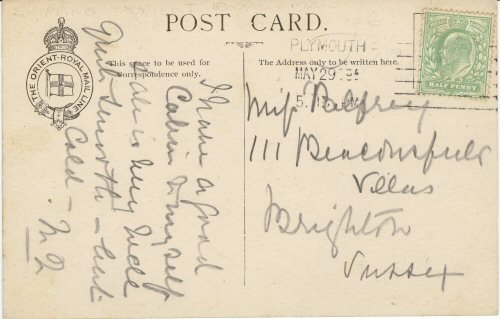 POST CARD.
THE ORIENT-ROYAL MAIL LINE
This space to be used for
correspondence only.
The Address only to be written here.
PLYMOUTH
MAY 29
HALF PENNY
I have a good
Cabin to myself
& all is very well
Quite smooth - but
Cold -
Miss
111 Beaconsfield
Villas
Brighton
Sussex